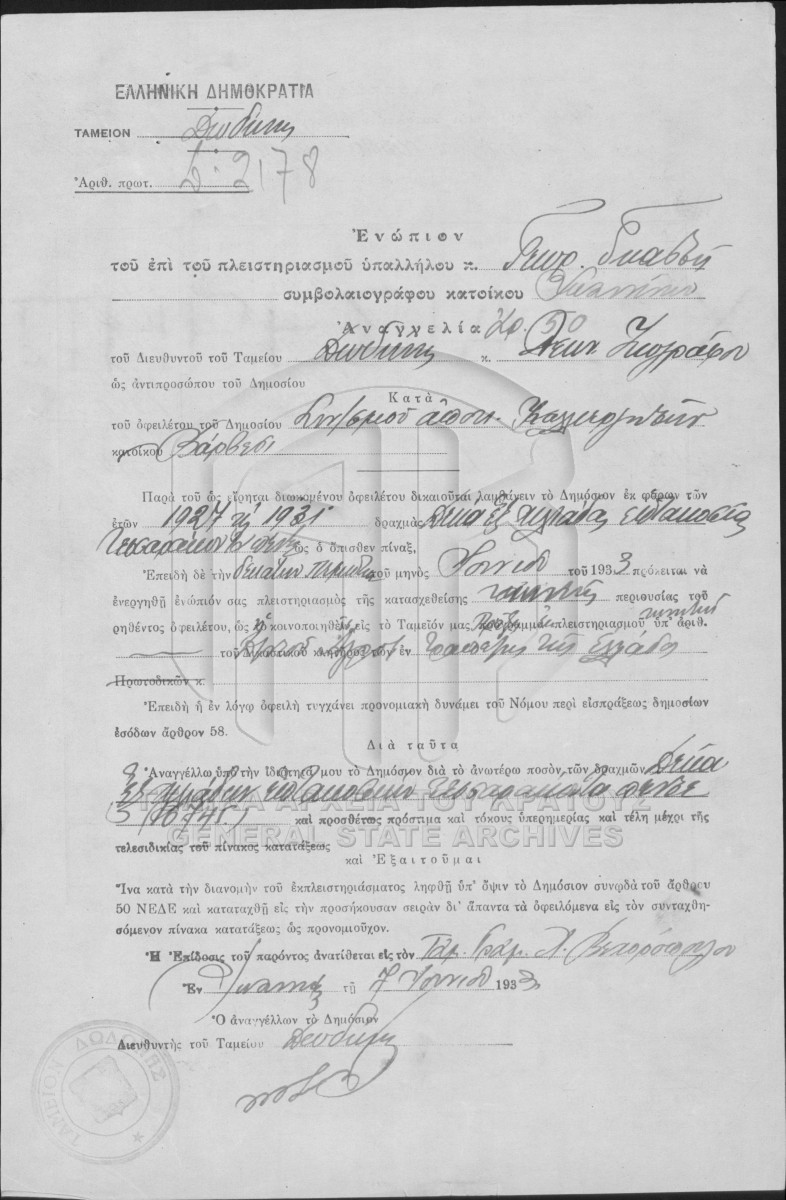 ΕΛΛΗΝΙΚΗ ΔΗΜΟΚΡΑΤΙΑ
ΤΑΜΕΙΟΝ Δωδώνης
Ἀριθ. πρωτ. 2178
Ἐνώπιον
τοῦ ἐπὶ τοῦ πλειστηριασμοῦ ὑπαλλήλου κ. Γεωρ.
συμβολαιογράφου κατοίκου Ἰωαννίνων
Ἀναγγελία 50
τοῦ Διευθυντοῦ τοῦ Ταμείου Δωδώνης κ. Ζωγράφου
ὡς ἀντιπροσώπου τοῦ Δημοσίου
Κατὰ
τοῦ ὀφειλέτου τοῦ Δημοσίου Συν/σμοῦ ἀποκ. Καλλιεργητῶν
κατοίκου Βάρβεσι
Παρὰ τοῦ ὡς εἴρηται διωκομένου ὀφειλέτου δικαιοῦται λαμβάνειν τὸ Δημόσιον ἐκ φόρων τῶν
ἐτῶν 1927 1931 δραχμὰς Δέκα ἓξ χιλιάδας ἑπτακοσίας
τεσσαράκοντα πέντε ὡς ὁ ὄπισθεν πίναξ,
Ἐπειδὴ δὲ τὴν δεκάτην πέμπτην τοῦ μηνὸς Ἰουνίου τοῦ 1933 πρόκειται νὰ
ἐνεργηθῇ ἐνώπιόν σας πλειστηριασμὸς τῆς κατασχεθείσης κινητῆς περιουσίας τοῦ
ρηθέντος ὀφειλέτου, ὡς κοινοποιηθὲν εἰς τὸ Ταμεῖον μας πρόγραμμα πλειστηριασμοῦ ὑπ' ἀριθ.
τοῦ δικαστικοῦ κλητῆρος τῶν ἐν Τραπέζης τῆς Ἑλλάδος
Πρωτοδικῶν κ.
Ἐπειδὴ ἡ ἐν λόγῳ ὀφειλὴ τυγχάνει προνομιακὴ δυνάμει τοῦ Νόμου περὶ εἰσπράξεως δημοσίων
ἐσόδων ἄρθρον 58.
Διὰ ταῦτα
Ἀναγγέλλω ὑπὸ τὴν ἰδιότητά μου τὸ Δημόσιον διὰ τὸ ἀνωτέρω ποσὸν τῶν δραχμῶν Δέκα
ἓξ χιλιάδων ἑπτακοσίων τεσσαράκοντα πέντε
(16745) καὶ προσθέτως πρόστιμα καὶ τόκους ὑπερημερίας καὶ τέλη μέχρι τῆς
τελεσιδικίας τοῦ πίνακος κατατάξεως
καὶ Ἐξαιτοῦμαι
Ἵνα κατὰ τὴν διανομὴν τοῦ ἐκπλειστηριάσματος ληφθῇ ὑπ' ὄψιν τὸ Δημόσιον συνῳδὰ τοῦ ἄρθρου
50 ΝΕΔΕ καὶ καταταχθῇ εἰς τὴν προσήκουσαν σειρὰν δι' ἅπαντα τὰ ὀφειλόμενα εἰς τὸν συνταχθη-
σόμενον πίνακα κατατάξεως ὡς προνομιοῦχον.
Ἡ Ἐπίδοσις τοῦ παρόντος ἀνατίθεται εἰς τὸν Ταμ. Γραμ.
Ἐν τῇ 7 Ἰουνίου 1933
Ὁ ἀναγγέλλων τὸ Δημόσιον
Διευθυντὴς τοῦ Ταμείου Δωδώνης
ΤΑΜΕΙΟΝ ΔΩΔΩΝΗΣ
ΓΕΝΙΚΑ ΑΡΧΕΙΑ ΤΟΥ ΚΡΑΤΟΥΣ
GENERAL STATE ARCHIVES